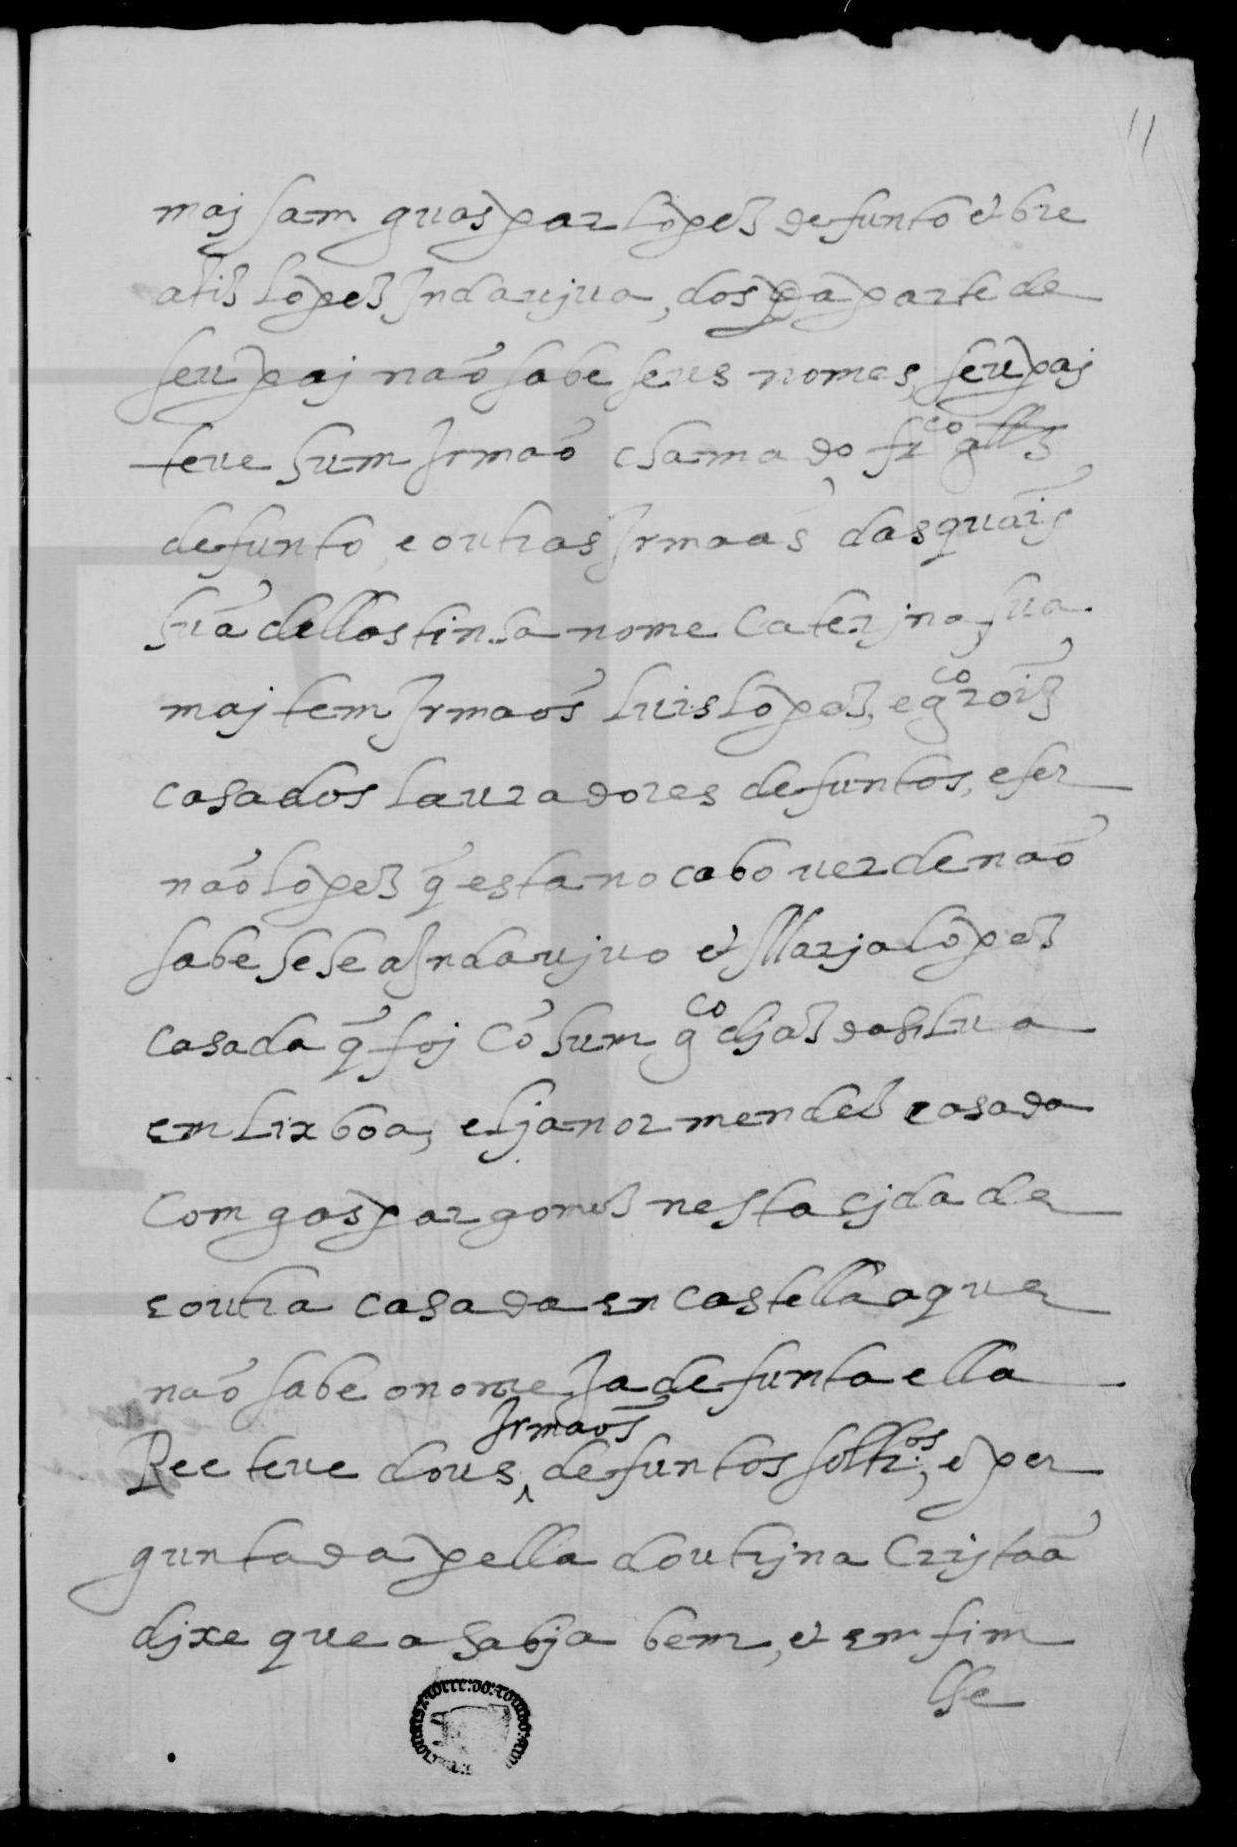 11
maj sam guaspar lopez defunto et bre
atis lopez Inda ujua, dos da parte de
seu paj não sabe seus nomes, seu paj
teve hum Irmaõ chamado frco allz
defunto, e outras Irmaas das quaĩs
huã dellas tinha nome Caterjna, sua
maj tem Irmaõs luis lopez, e gco roĩz
casados lauradores defuntos, e fer
naõ lopez q̃ esta no cabo uerde naõ
sabe se he aInda ujuo et Marja lopez
casada q̃ foj cõ hum gco djaz da silua
em lixboa, e ljanor mendez casada
Com gaspar gomez nesta cjdade
e outra casada en castella a que
naõ sabe o nome Ja defunta ella
Ree teue dous ^ Irmaõs defuntos soltros, e per
guntada pella doutrjna Crjstaã
djxe que a sabja bem, et em fim
lhe